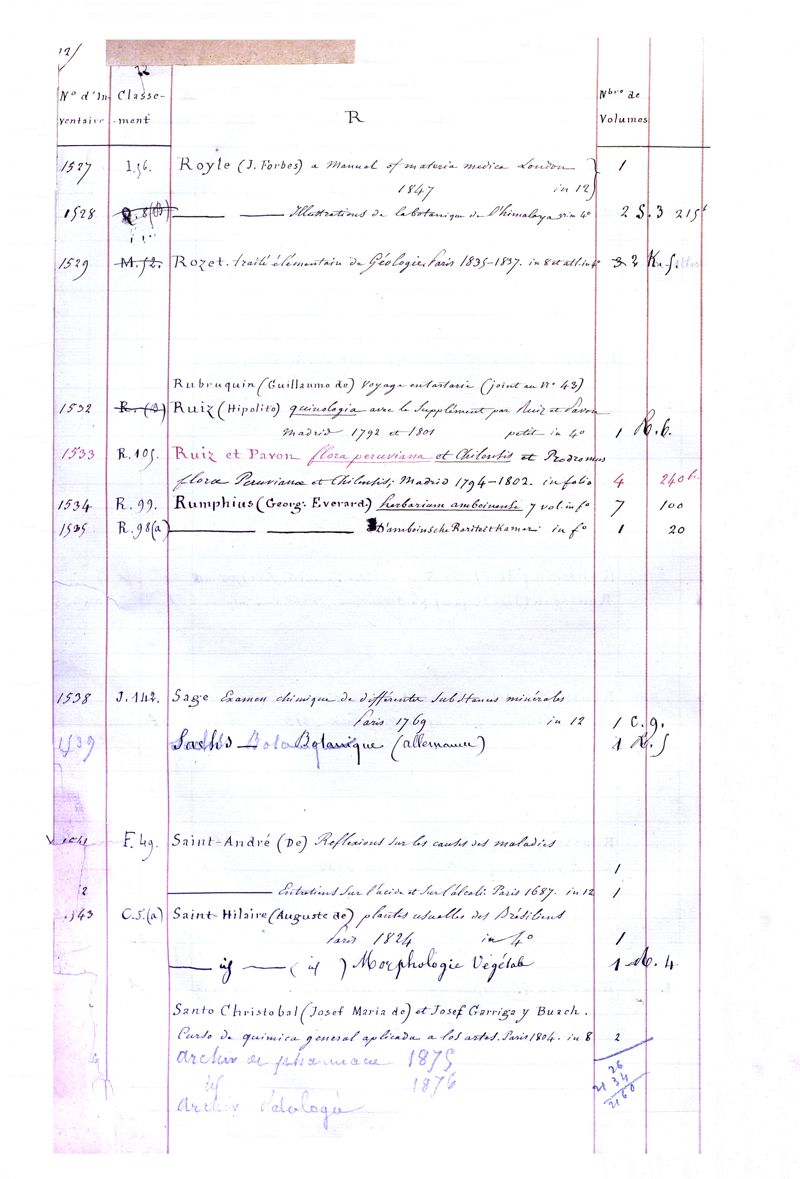 12/
22
N° d'In- Classe- R Nbre de
ventaire -ment Volumes
1527 I.56. Royle (J. Forbes) a Manual of materia medica London 1
1847 in 12
1528 R.8(B) Illustrations de la botanique de l'himalaya in 4° 2 S.3 215f
1529 M.52. Rozet. traité élémentaire de Géologie. Paris 1835-1837. in 8 et atl. in 4° 3 2 K.5.
Rubruquin (Guillaume de) Voyage en tartarie (joint au N° 43)
1532 R. Ruiz (Hipolito) quinologia avec le Supplément par Ruiz et Pavon
Madrid 1792 et 1801 petit in 4° 1 R.6.
1533 R.105. Ruiz et Pavon flora peruviana et Chilensis et Prodromus
flora Peruvianae et Chilensis, Madrid 1794-1802. in folio 4 240f.
1534 R.99. Rumphius (Georg: Everard) herbarium amboinense 7 vol. in f° 7 100
1535 R.98(a) D'amboinsche Rariteit Kamer in f° 1 20
1538 J.142. Sage Examen chimique de différentes substances minérales
Paris 1769 in 12 1 C.9.
1539 Sachs — Botanique (allemande) 1 R.5
F.49. Saint-André (De) Reflexions sur les causes des maladies
1
2 Entretiens sur l'acide et sur l'alcali. Paris 1687. in 12 1
.543 C.5.(a) Saint-Hilaire (Auguste de) plantes usuelles des Brésiliens
Paris 1824 in 4° 1
— id — ( id ) Morphologie Végétale 1 R. 4
Santo Christobal (Josef Maria de) et Josef Garriga y Buach.
Curso de quimica general aplicada a las artes. Paris 1804. in 8 2
Archiv de pharmacie 1875
id 1876
Archiv
26
21 34
2160